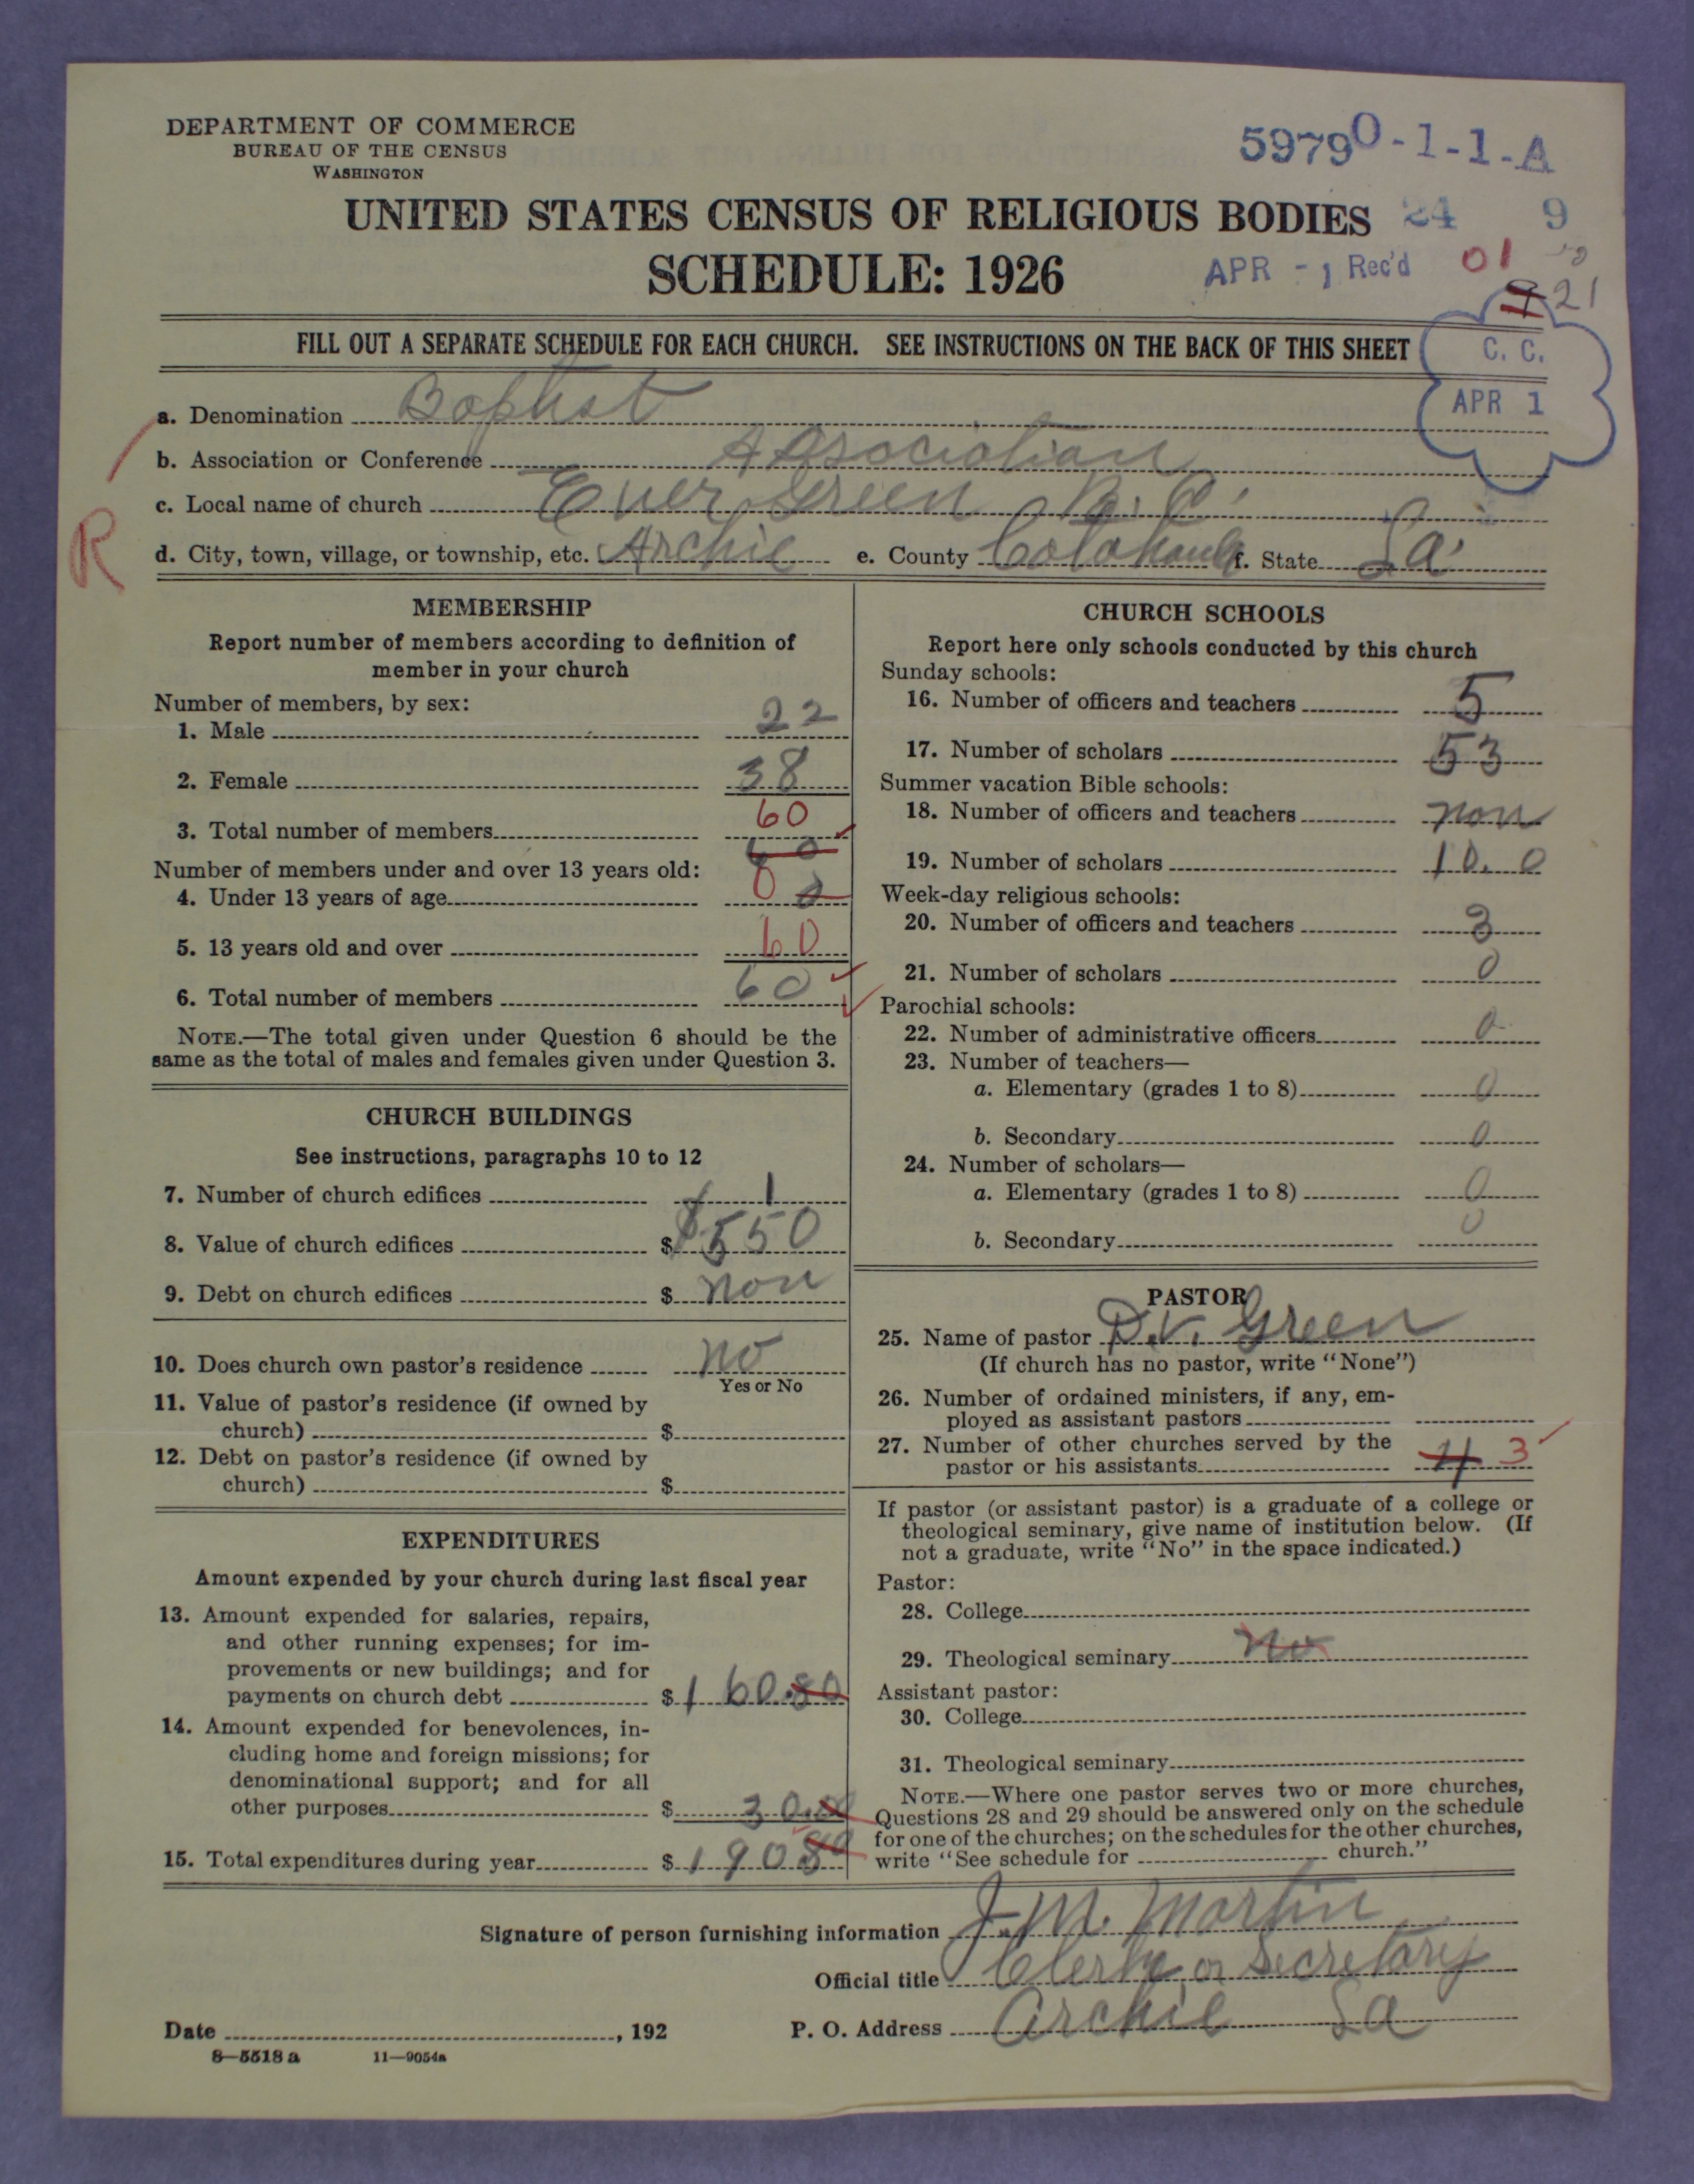 DEPARTMENT OF COMMERCE
BUREAU OF THE CENSUS
WASHINGTON
59790-1-1-A
UNITED STATES CENSUS OF RELIGIOUS BODIES 24 9
SCHEDULE: 1926
APR - 1 Rec'd 01
9 21
FILL OUT A SEPARATE SCHEDULE FOR EACH CHURCH. SEE INSTRUCTIONS ON THE BACK OF THIS SHEET
C. C.
APR 1
a. Denomination Baptist
b. Association or Conference Association
c. Local name of church Ever Green B. C.
R
d. City, town, village, or township, etc. Archie e. County Catahoula f. State La
MEMBERSHIP
Report number of members according to definition of
member in your church
Number of members, by sex:
1. Male 22
2. Female 38
3. Total number of members 60
60
Number of members under and over 13 years old:
4. Under 13 years of age 0
5. 13 years old and over 60
6. Total number of members 60
NOTE.—The total given under Question 6 should be the
same as the total of males and females given under Question 3.
CHURCH BUILDINGS
See instructions, paragraphs 10 to 12
7. Number of church edifices 1
8. Value of church edifices $ $550
9. Debt on church edifices $ non
10. Does church own pastor's residence no
Yes or No
11. Value of pastor's residence (if owned by
church) $
12. Debt on pastor's residence (if owned by
church) $
EXPENDITURES
Amount expended by your church during last fiscal year
13. Amount expended for salaries, repairs,
and other running expenses; for im-
provements or new buildings; and for
payments on church debt $ 160.80
14. Amount expended for benevolences, in-
cluding home and foreign missions; for
denominational support; and for all
other purposes $ 30.00
15. Total expenditures during year $ 190 80
CHURCH SCHOOLS
Report here only schools conducted by this church
Sunday schools:
16. Number of officers and teachers 5
17. Number of scholars 53
Summer vacation Bible schools:
18. Number of officers and teachers non
19. Number of scholars 10. 0
Week-day religious schools:
20. Number of officers and teachers 3
21. Number of scholars 0
Parochial schools:
22. Number of administrative officers 0
23. Number of teachers—
a. Elementary (grades 1 to 8) 0
b. Secondary 0
24. Number of scholars—
a. Elementary (grades 1 to 8) 0
b. Secondary 0
PASTOR
25. Name of pastor D.V. Green
(If church has no pastor, write "None")
26. Number of ordained ministers, if any, em-
ployed as assistant pastors
27. Number of other churches served by the
pastor or his assistants 4 3
If pastor (or assistant pastor) is a graduate of a college or
theological seminary, give name of institution below. (If
not a graduate, write "No" in the space indicated.)
Pastor:
28. College
29. Theological seminary no
Assistant pastor:
30. College
31. Theological seminary
NOTE.—Where one pastor serves two or more churches,
Questions 28 and 29 should be answered only on the schedule
for one of the churches; on the schedules for the other churches,
write "See schedule for church."
Signature of person furnishing information J. M. Martin
Official title Clerk or Secretary
Date , 192 P. O. Address Archie La
8—5518 a 11—9054a